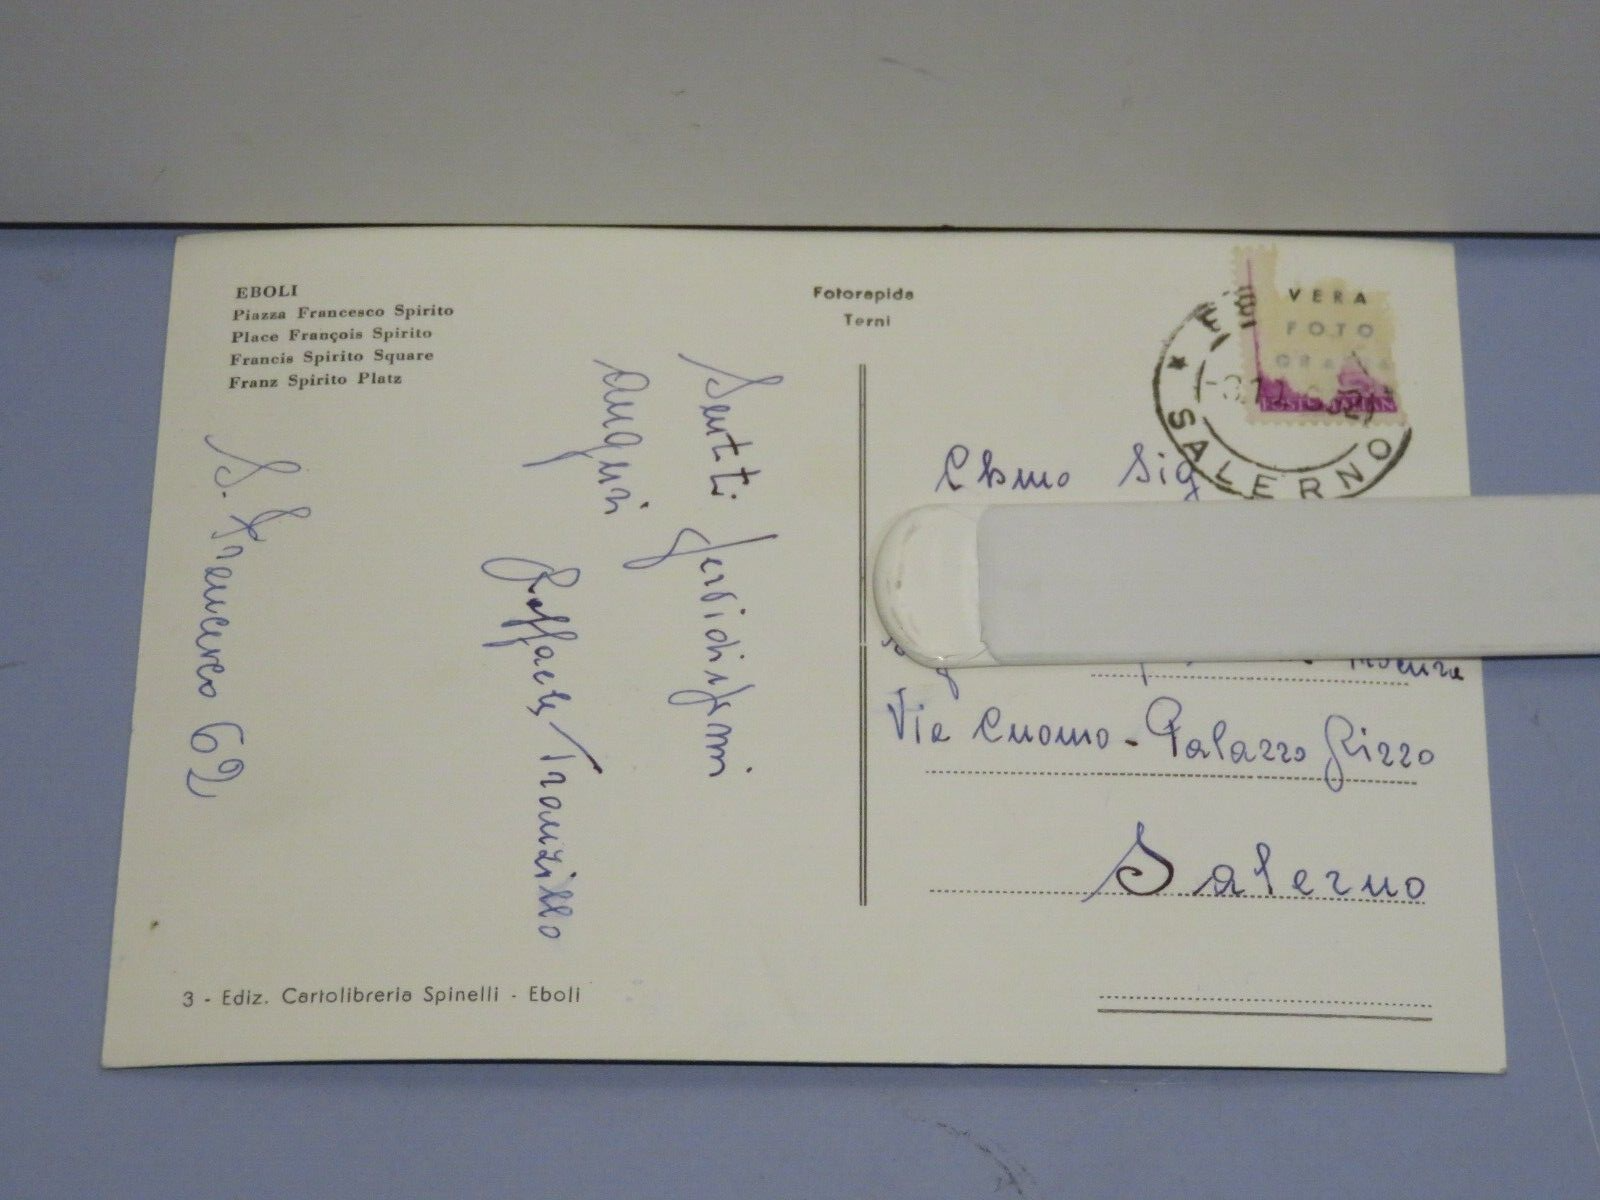 EBOLI
Piazza Francesco Spirito
Place François Spirito
Francis Spirito Square
Franz Spirito Platz
Fotorapida
Terni
VERA
FOTO
SALERNO
Sentiti fervidissimi
auguri
Raffaele Tranzillo
S. Francesco 62
Sig
Via Cuomo - Palazzo Rizzo
Salerno
3 - Ediz. Cartolibreria Spinelli - Eboli